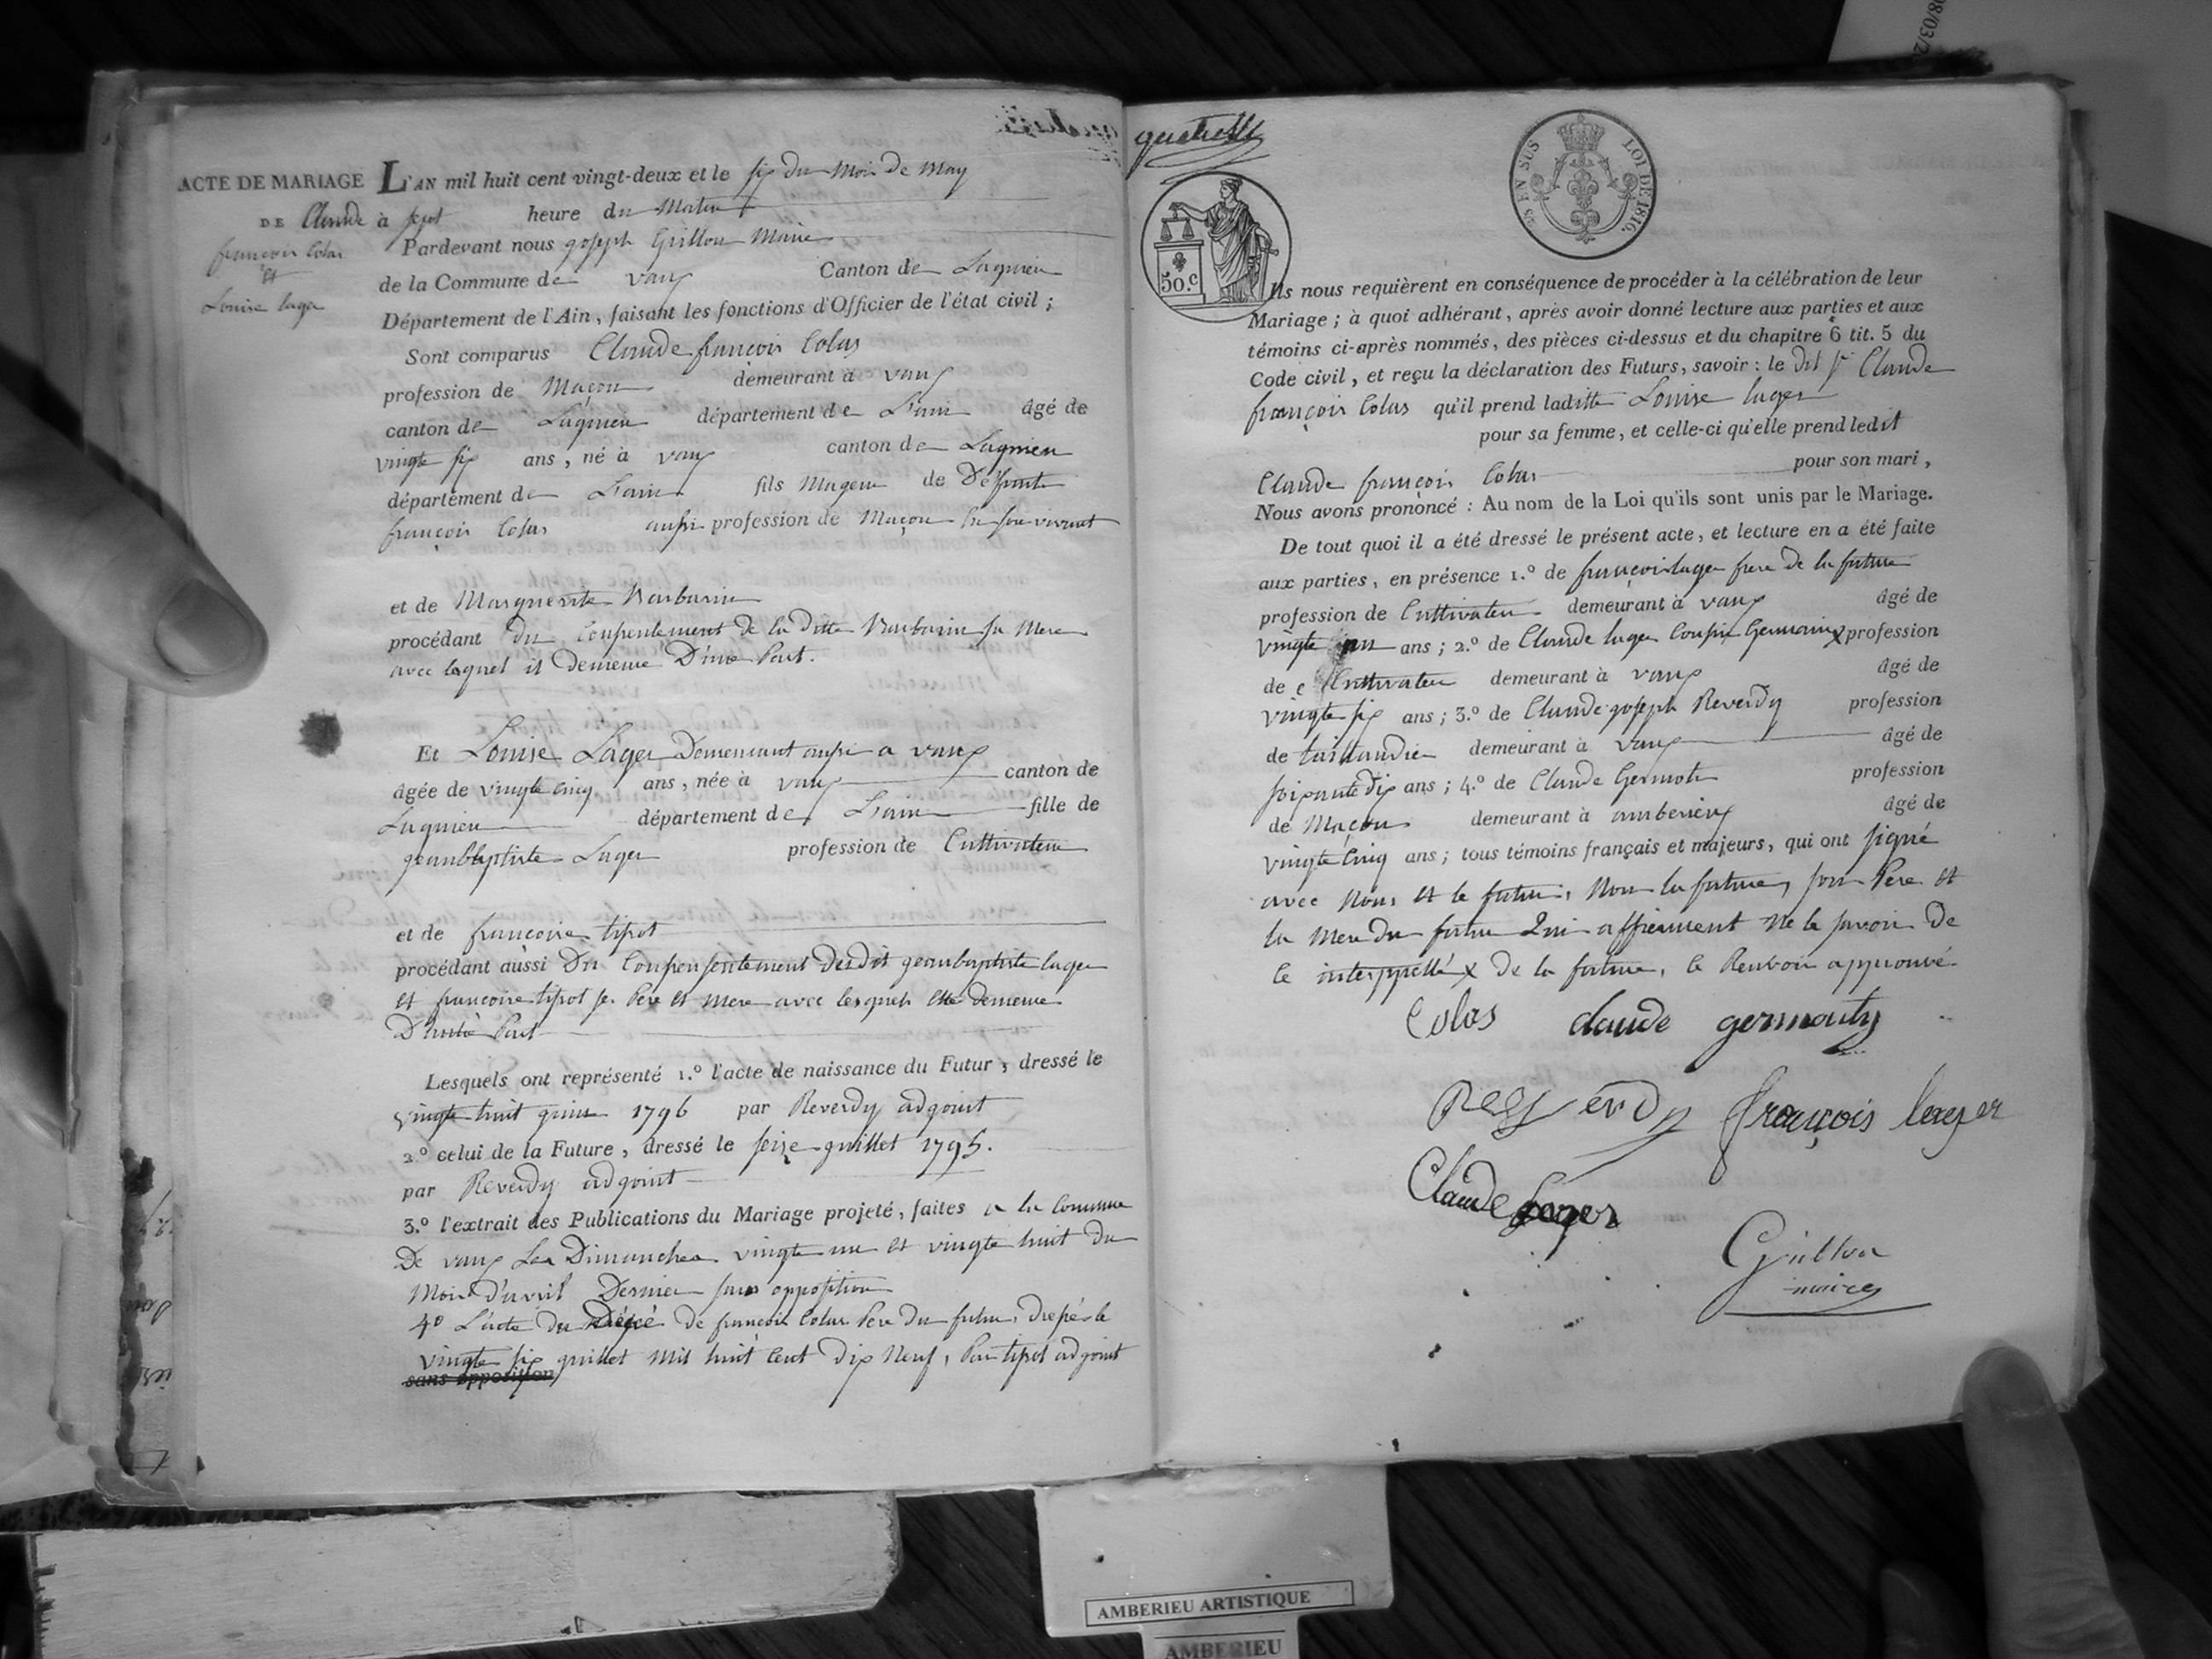 ACTE DE MARIAGE
DE Claude
françois Colas
et
Louise lager
L'AN mil huit cent vingt-deux et le six du Mois de May
à sept heure du Matin
Pardevant nous joseph Grillon Maire
de la Commune de vaux Canton de Lagnieu
Département de l'Ain, faisant les fonctions d'Officier de l'état civil ;
Sont comparus Claude françois Colas
profession de Maçon demeurant à vaux
canton de Lagnieu département de L'ain âgé de
vingte six ans, né à vaux canton de Lagnieu
département de L'ain fils Mageur de Défunt
françois Colas aussi profession de Maçon En son vivant
et de Marguerite Barbarin
procédant du Consentement de la ditte Barbarin sa Mere
avec lequel il demeure D'une Part.
Et Louise Lager Demeurant aussi a vaux
âgée de vingte cinq ans, née à vaux canton de
Lagnieu département de L'ain fille de
jeanbaptiste Lager profession de Cultivateur
et de francoise tipot
procédant aussi Du Consentement desdit jeanbaptiste lager
et francoise tipot se Pere et Mere avec lesquels elle demeure
D'autre Part
Lesquels ont représenté 1.º l'acte de naissance du Futur, dressé le
vingte huit juin 1796 par Reverdy adjoint
2.º celui de la Future, dressé le seize juillet 1795.
par Reverdy adjoint
3.º l'extrait des Publications du Mariage projeté, faites a la Commune
De vaux Les Dimanches vingte un et vingte huit du
Mois d'avril Dernier sans opposition
4º L'acte du Décé de francois Colas Pere du futur, dressé le
vingte six juillet mil huit Cent dix Neuf, Par tipot adjoint
sans opposition
50.C
EN SUS LOI DE 1816.
Ils nous requièrent en conséquence de procéder à la célébration de leur
Mariage ; à quoi adhérant, après avoir donné lecture aux parties et aux
témoins ci-après nommés, des pièces ci-dessus et du chapitre 6 tit. 5 du
Code civil, et reçu la déclaration des Futurs, savoir : le dit Sr Claude
françois Colas qu'il prend laditte Louise lager
pour sa femme, et celle-ci qu'elle prend ledit
Claude françois Colas pour son mari,
Nous avons prononcé : Au nom de la Loi qu'ils sont unis par le Mariage.
De tout quoi il a été dressé le présent acte, et lecture en a été faite
aux parties, en présence 1.º de françois lager frere de la future
profession de Cultivateur demeurant à vaux âgé de
vingte un ans ; 2.º de Claude lager Cousin Germain x profession
de Cultivateur demeurant à vaux âgé de
vingte six ans ; 3.º de Claude joseph Reverdy profession
de taillandier demeurant à vaux âgé de
soixante dix ans ; 4.º de Claude Germoti profession
de Maçon demeurant à amberieux âgé de
vingte Cinq ans ; tous témoins français et majeurs, qui ont signé
avec Nous et le futur, Non la future, son Pere et
la Mere du futur Qui affirment Ne le savoir De
Ce interppellé x De la future, le Renvoir approuvé
Colas claude germouty
Reverdy françois lager
Claude lager
Grillon
maire
AMBERIEU ARTISTIQUE
AMBERIEU